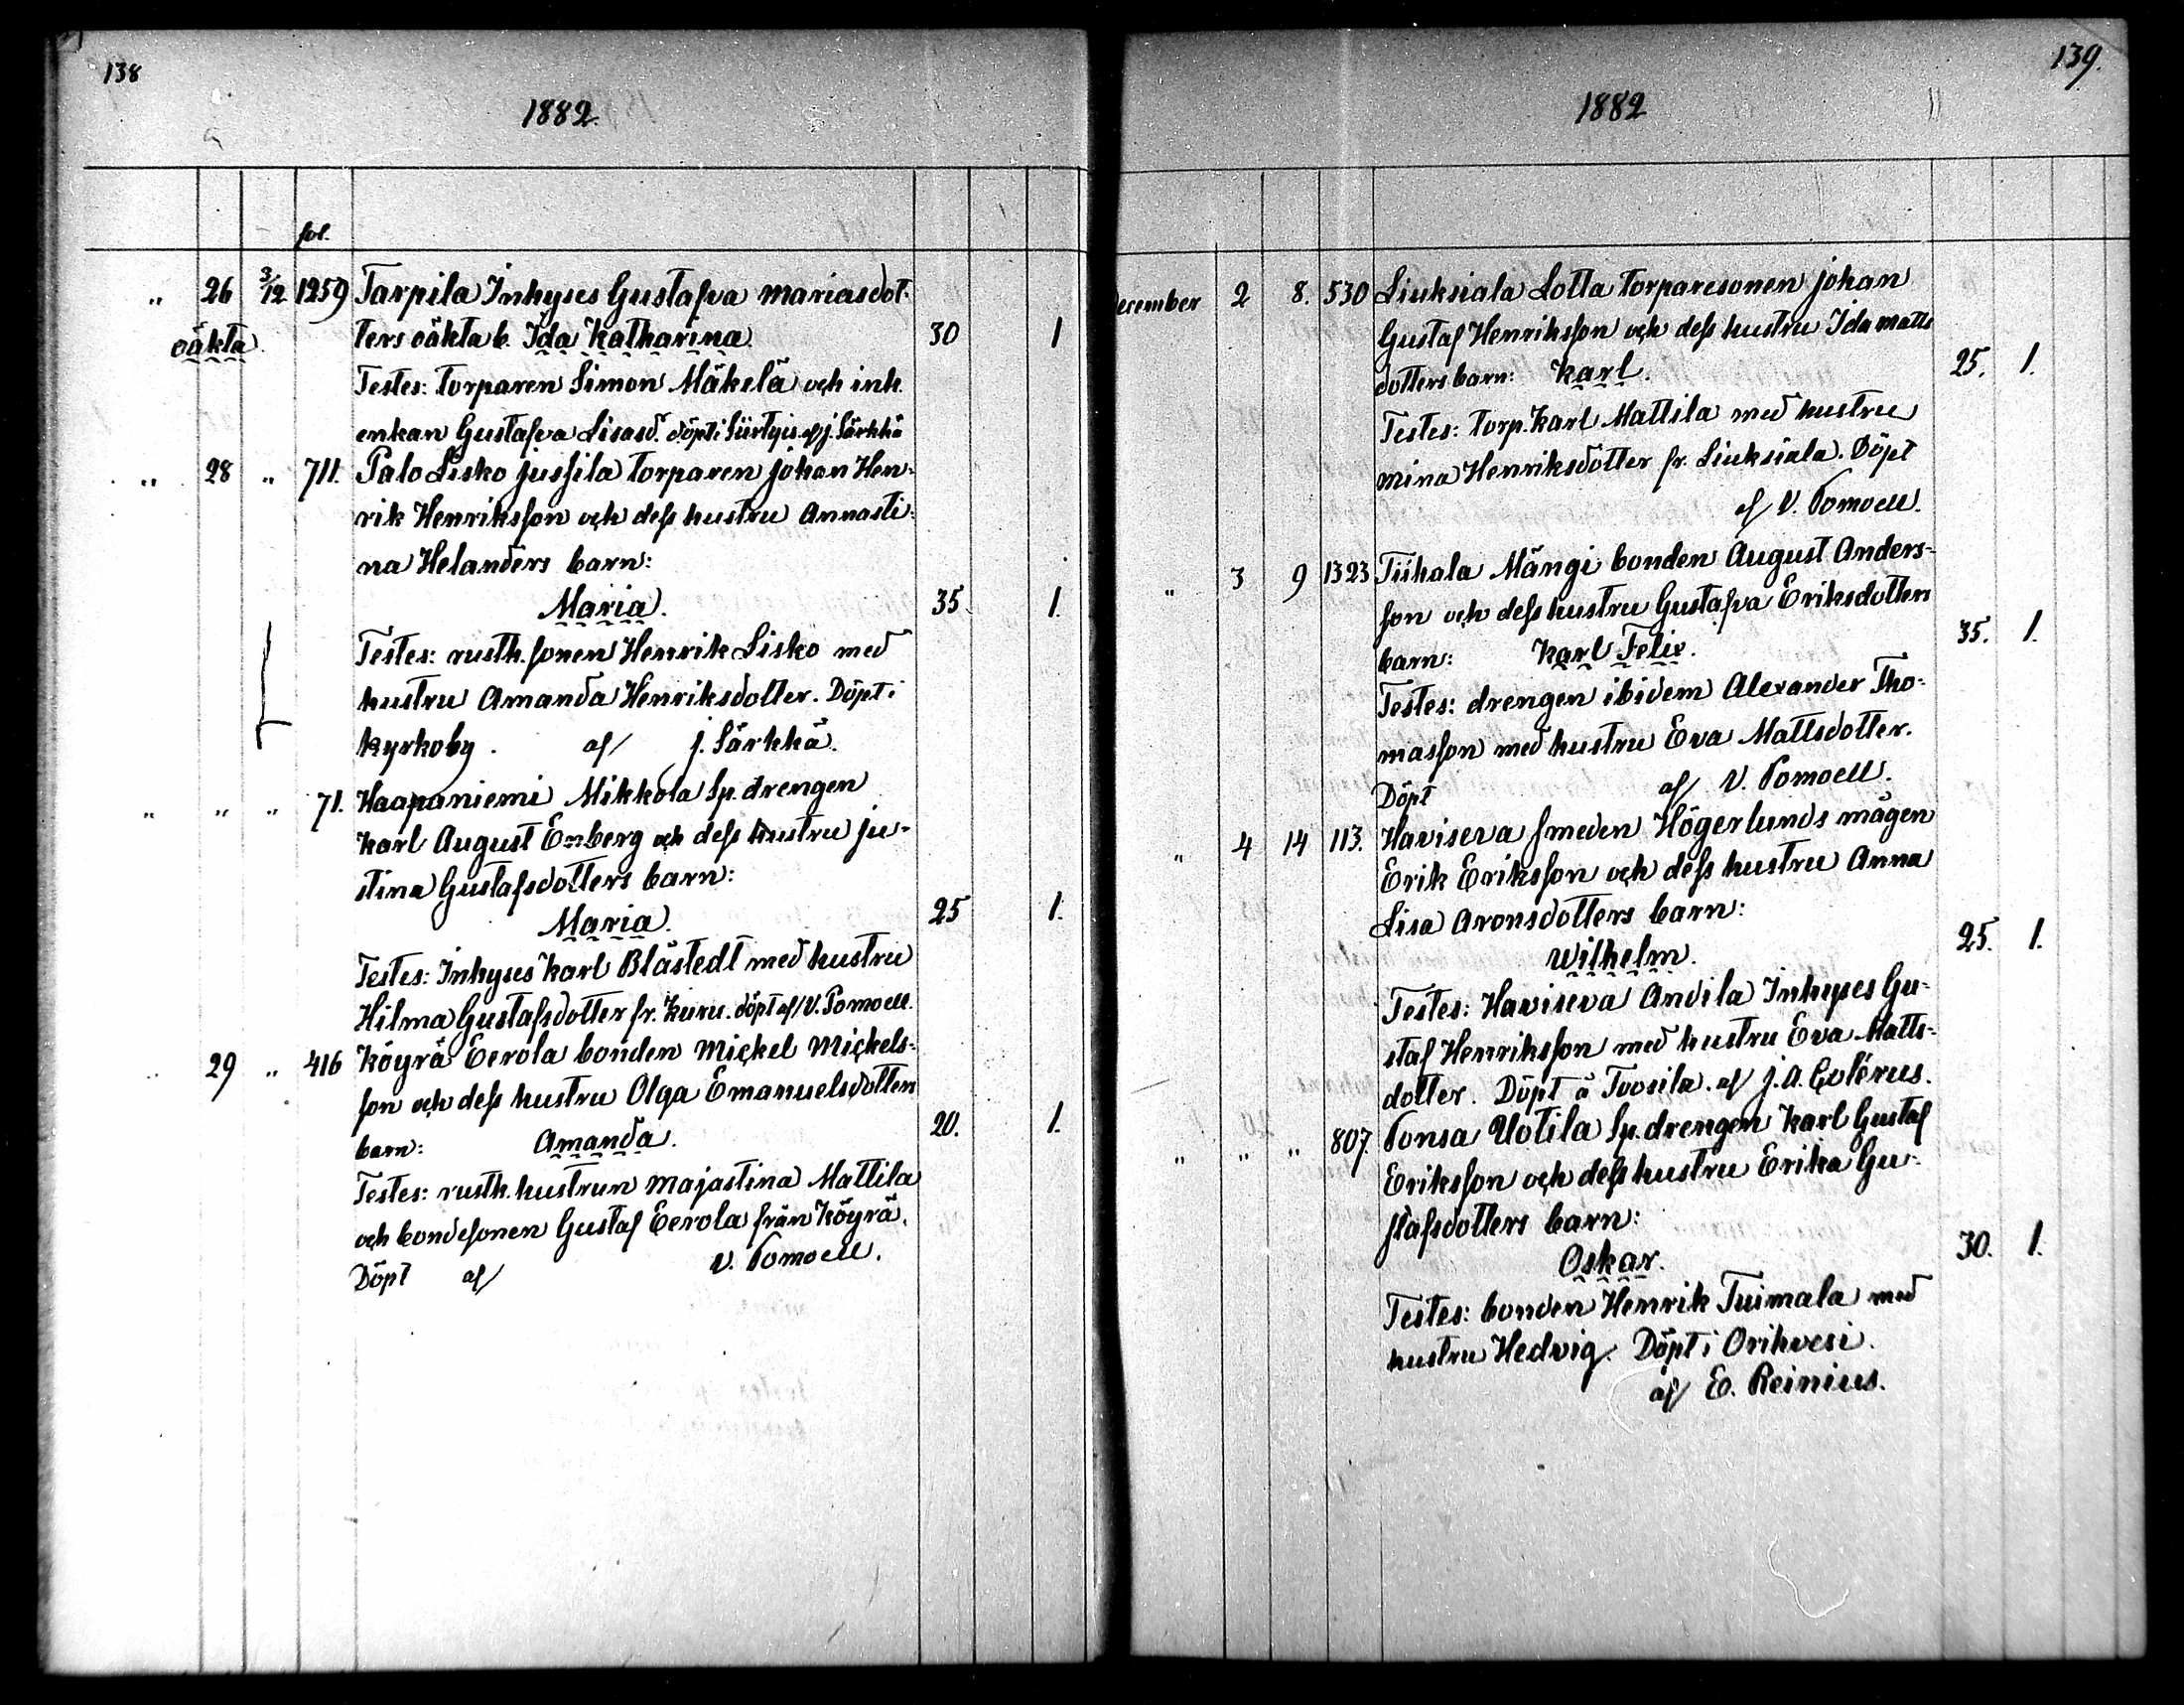 138
1882.
fol.
" 26 3/12 1259 Tarpila Inhyses Gustafva Mariasdot-
oäkta. ters oäkta b. Ida Katharina. 30 1
Testes: torparen Simon Mäkelä och inh.
enkan Gustafva Lisasd. döpt i af J. Särkkä
" 28 " 711. Palo Lisko Jussila torparen Johan Hen-
rik Henriksson och dess hustru Annasti-
na Helanders barn:
Maria. 35. 1.
Testes: rusth. sonen Henrik Lisko med
hustru Amanda Henriksdotter. Döpt i
Kyrkoby. af J. Särkkä.
" " " 71. Haapaniemi Mikkola Sp. drengen
Karl August Enberg och dess hustru Ju-
stina Gustafsdotters barn:
Maria. 25 1.
Testes: Inhyses Karl Blåstedt med hustru
Hilma Gustafsdotter fr. Kuru. döpt af V. Pomoell.
" 29 " 416 Köyrä Eerola bonden Mickel Mickels-
son och dess hustru Olga Emanuelsdotters
barn: Amanda. 20. 1.
Testes: rusth. hustrun Majastina Mattila
och bondesonen Gustaf Eerola från Köyrä.
Döpt af V. Pomoell.
139.
1882
December 2 8. 530 Liuksiala Lotta torparesonen Johan
Gustaf Henriksson och dess hustru Ida Matts
dotters barn: Karl. 25. 1.
Testes: torp. Karl Mattila med hustru
Mina Henriksdotter fr. Liuksiala. Döpt
af V. Pomoell.
" 3 9 1323 Tiihala Mängi bonden August Anders-
son och dess hustru Gustafva Eriksdotters
barn: Karl Felix. 35. 1.
Testes: drengen ibidem Alexander Tho-
masson med hustru Eva Mattsdotter.
Döpt af V. Pomoell.
" 4 14 113. Haviseva smeden Högerlunds mågen
Erik Eriksson och dess hustru Anna
Lisa Aronsdotters barn:
Wilhelm. 25. 1.
Testes: Haviseva Anvila Inhyses Gu-
staf Henriksson med hustru Eva Matts-
dotter. Döpt å Tvosila. af J. A. Colérus.
" " " 807. Ponsa Uotila Sp. drengen Karl Gustaf
Eriksson och dess hustru Erika Gu-
stafsdotters barn:
Oskar. 30. 1.
Testes: bonden Henrik Tuimala med
hustru Hedvig. Döpt i Orihvesi.
af E. Reinius.